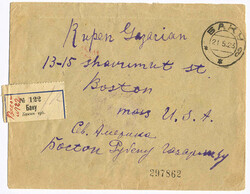 Rupen Gazarian
13-15 Shavumut st.
Boston
Mass U.S.A.
Св. Америка
Бостон Рубену Газарянцу
БАКУ
21.5.23
№ 122
Баку
297862